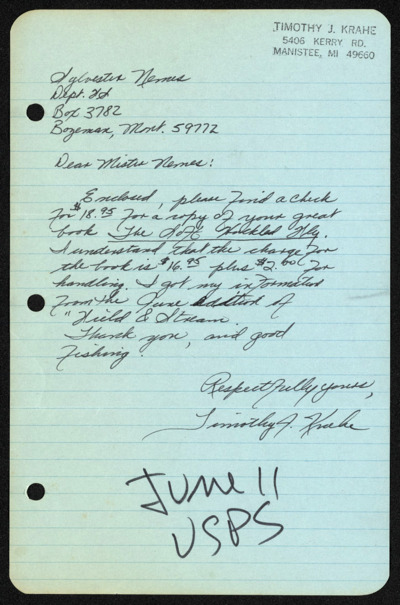 TIMOTHY J. KRAHE
5406 KERRY RD.
MANISTEE, MI 49660
Sylvester Nemes
Dept. FS
Box 3782
Bozeman, Mont. 59772
Dear Mister Nemes:
Enclosed, please find a check
for $18.95 for a copy of your great
book The Soft Hackled Fly.
I understand that the charge for
the book is $16.95 plus $2.00 for
handling. I got my information
from the June addition of
"Field & Stream.
Thank you, and good
fishing.
Respectfully yours,
Timothy J. Krahe
June 11
USPS